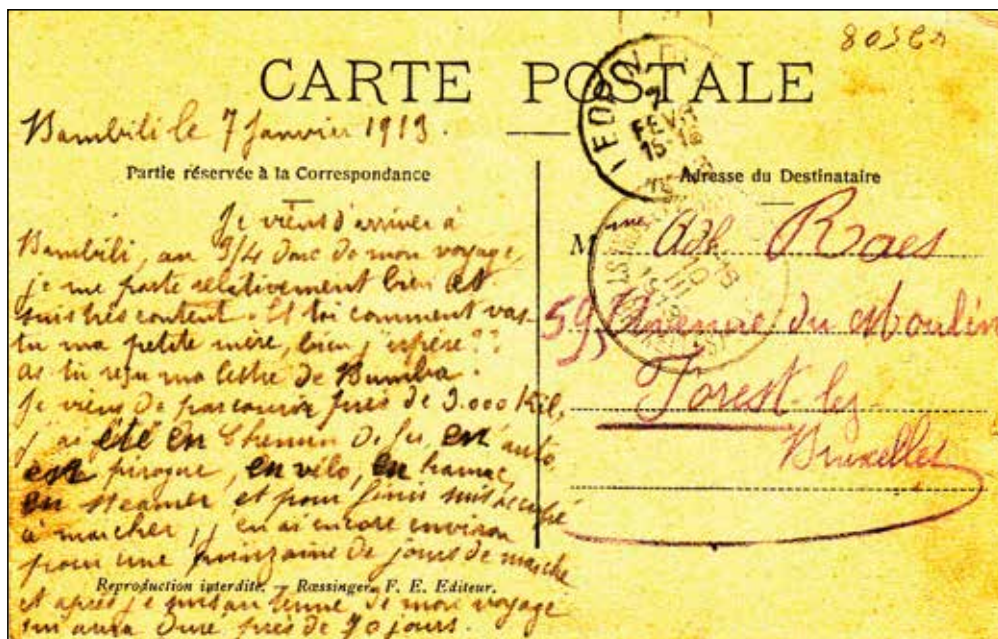 CARTE POSTALE
Bambili le 7 Janvier 1913.
Partie réservée à la Correspondance
Je viens d'arriver à
Bambili, au 3/4 donc de mon voyage,
je me porte relativement bien et
suis très content. Et toi comment vas
tu ma petite mère, bien j'espère??
as tu reçu ma lettre de Bumba.
Je viens de parcourir près de 3.000 Kil,
j'ai été en Chemin de fer, en auto,
en pirogue, en vélo, en hamac,
en steamer et pour finir suis occupé
à marcher, j'en ai encore environ
pour une quinzaine de jours de marche
Reproduction interdite. — Rœssinger. F. E. Editeur.
et après je suis au terme de mon voyage
qui aura duré près de 70 jours.
LEOPOLDVILLE
7
FEVR
15-18
Adresse du Destinataire
Mme Adh. Raes
59, Avenue du Moulin
Forest-lez-
Bruxelles